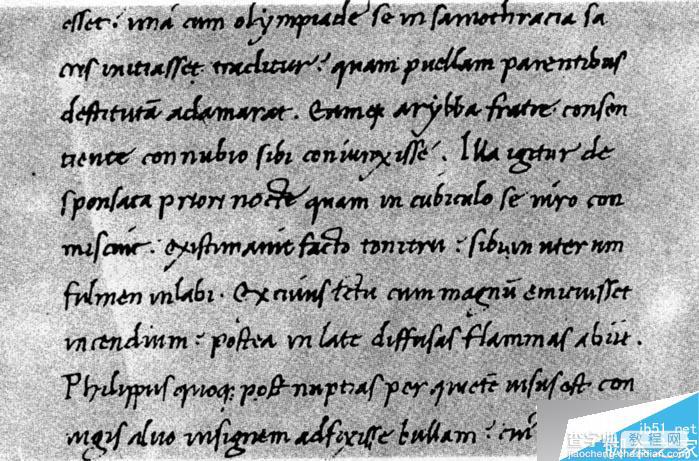 esset: unà cum olympiade se in samothracia sa
cris initiasset traditur: quam puellam parentibus
destitutā adamarat. Eamq arybba fratre consen
tiente connubio sibi coniunxisse. Illa igitur de
sponsata priori nocte quam in cubiculo se viro con
miscuit: existimavit facto tonitru: sibi in uterum
fulmen inlabi. Ex cuius ictu cum magnū emicuisset
incendium: postea in late diffusas flammas abiit.
Philippus quoq; post nuptias per quietē visus est con
iugis aluo insignem adfixisse bullam: cui
jb51.net
查字典 教程网
jiaocheng.chazidian.com